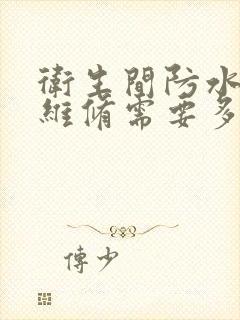 衛生間防水
維脩需要多
傅少